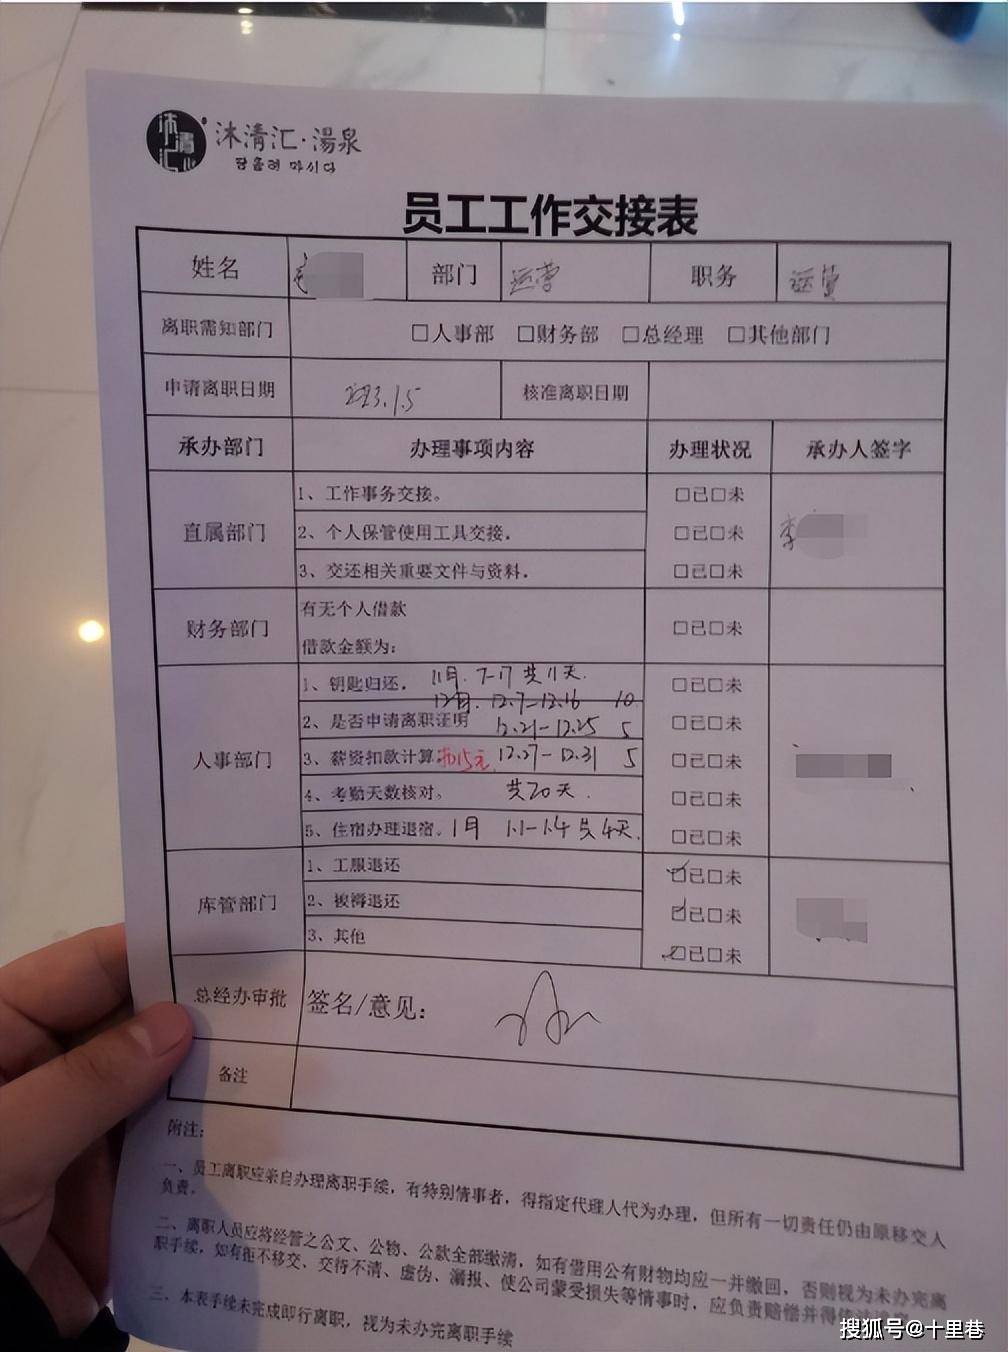 沐清汇·湯泉
员工工作交接表
姓名 部门 运营 职务 运营
离职需知部门 □人事部 □财务部 □总经理 □其他部门
申请离职日期 2023.1.5 核准离职日期
承办部门 办理事项内容 办理状况 承办人签字
直属部门
1、工作事务交接。 □已□未
2、个人保管使用工具交接。 □已□未 李
3、交还相关重要文件与资料。 □已□未
财务部门
有无个人借款
借款金额为: □已□未
人事部门
1、钥匙归还。 11月. 7-17 共11天. □已□未
12月. 12.7-12.16 10.
2、是否申请离职证明 12.21-12.25 5 □已□未
3、薪资扣款计算 扣15元 12.27-12.31 5 □已□未
4、考勤天数核对。 共20天. □已□未
5、住宿办理退宿。1月 1.1-1.4 共4天. □已□未
库管部门
1、工服退还 □已□未
2、被褥退还 □已□未
3、其他 □已□未
总经办审批 签名/意见:
备注
附注:
一、员工离职应亲自办理离职手续，有特别情事者，得指定代理人代为办理，但所有一切责任仍由原移交人
负责。
二、离职人员应将经管之公文、公物、公款全部缴清，如有借用公有财物均应一并缴回，否则视为未办完离
职手续，如有拒不移交、交待不清、虚伪、漏报、使公司蒙受损失等情事时，应负责赔偿并得依法追究
三、本表手续未完成即行离职，视为未办完离职手续
搜狐号@十里巷